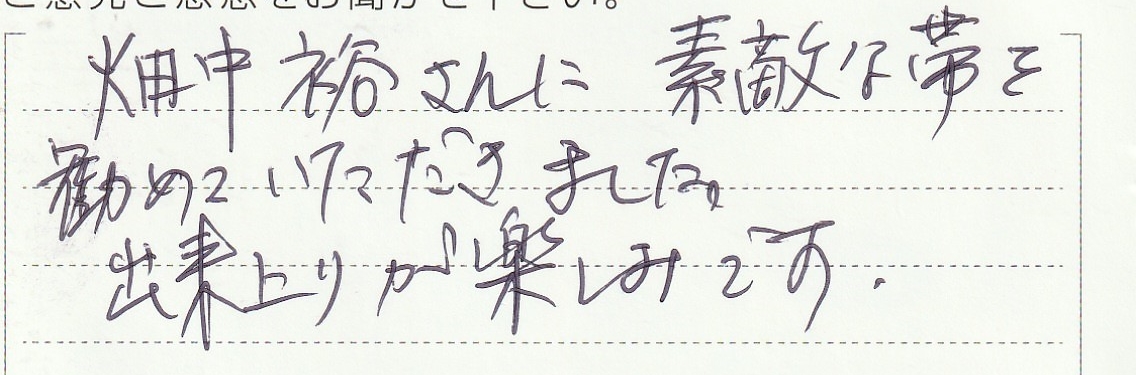 ご意見ご感想をお聞かせ下さい。
畑中裕さんに 素敵な帯を
勧めていただきました。
出来上りが楽しみです.